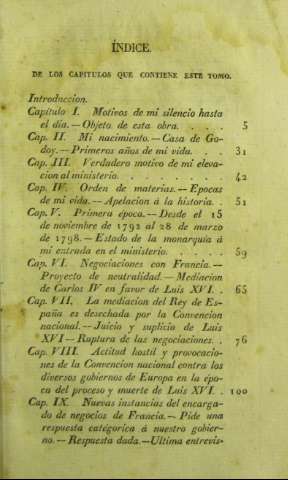 ÍNDICE.
DE LOS CAPITULOS QUE CONTIENE ESTE TOMO.
Introduccion.
Capítulo I. Motivos de mi silencio hasta
el dia. — Objeto de esta obra. . . . . 5
Cap. II. Mi nacimiento. — Casa de Go-
doy. — Primeros años de mi vida. . . 31
Cap. III. Verdadero motivo de mi eleva-
cion al ministerio. . . . . . . . . 42
Cap. IV. Orden de materias. — Epocas
de mi vida. — Apelacion á la historia. . 51
Cap. V. Primera época. — Desde el 15
de noviembre de 1792 al 28 de marzo
de 1798. — Estado de la monarquía á
mi entrada en el ministerio. . . . . . 59
Cap. VI. Negociaciones con Francia. —
Proyecto de neutralidad. — Mediacion
de Carlos IV en favor de Luis XVI. . 65
Cap. VII. La mediacion del Rey de Es-
paña es desechada por la Convencion
nacional. — Juicio y suplicio de Luis
XVI — Ruptura de las negociaciones. . 76
Cap. VIII. Actitud hostil y provocacio-
nes de la Convencion nacional contra los
diversos gobiernos de Europa en la épo-
ca del proceso y muerte de Luis XVI. . 100
Cap. IX. Nuevas instancias del encarga-
do de negocios de Francia. — Pide una
respuesta categórica á nuestro gobier-
no. — Respuesta dada. — Ultima entrevis-